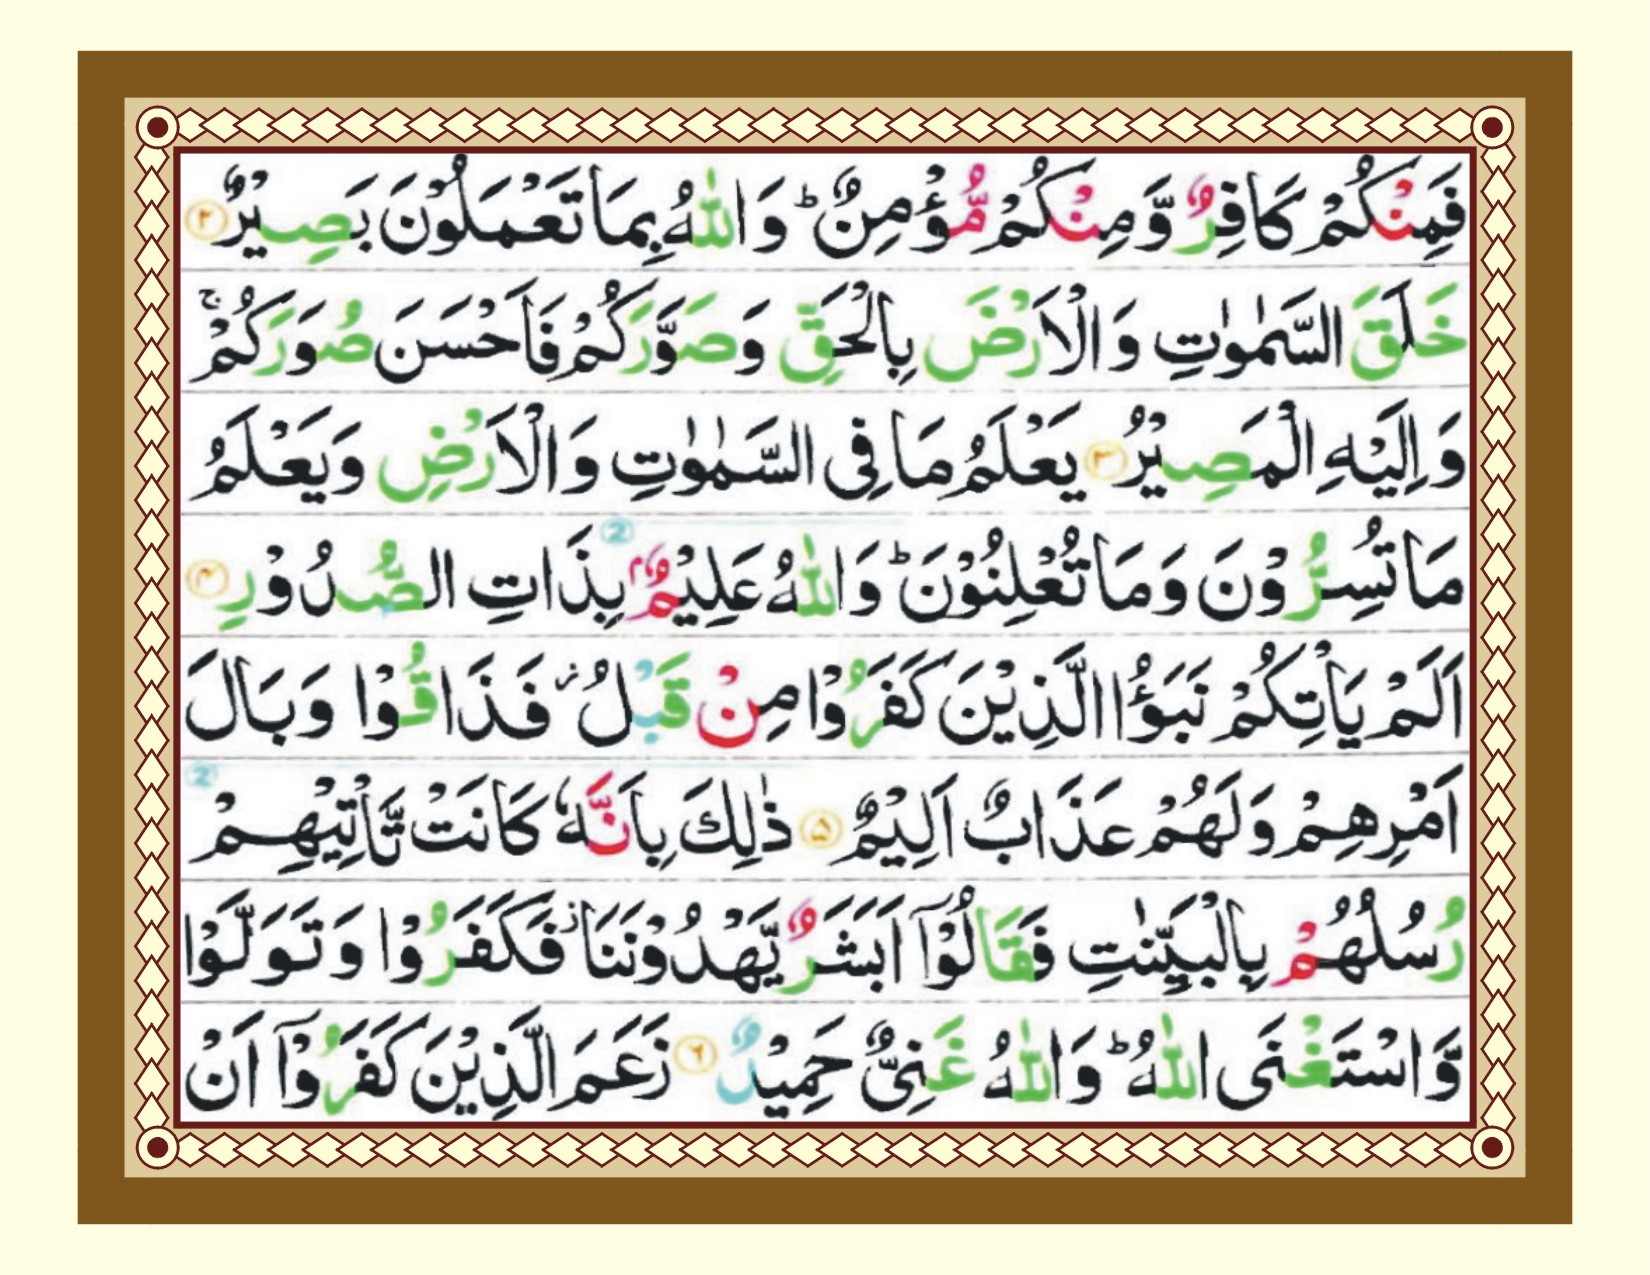 فَمِنْكُمْ كَافِرٌ وَّمِنْكُمْ مُّؤْمِنٌ ؕ وَاللّٰهُ بِمَا تَعْمَلُوْنَ بَصِيْرٌ ۲
خَلَقَ السَّمٰوٰتِ وَالْاَرْضَ بِالْحَقِّ وَصَوَّرَكُمْ فَاَحْسَنَ صُوَرَكُمْ ۚ
وَاِلَيْهِ الْمَصِيْرُ ۳ يَعْلَمُ مَا فِى السَّمٰوٰتِ وَالْاَرْضِ وَيَعْلَمُ
مَا تُسِرُّوْنَ وَمَا تُعْلِنُوْنَ ؕ وَاللّٰهُ عَلِيْمٌۢ بِذَاتِ الصُّدُوْرِ ۴
اَلَمْ يَاْتِكُمْ نَبَؤُا الَّذِيْنَ كَفَرُوْا مِنْ قَبْلُ ؗ فَذَاقُوْا وَبَالَ
اَمْرِهِمْ وَلَهُمْ عَذَابٌ اَلِيْمٌ ۵ ذٰلِكَ بِاَنَّهٗ كَانَتْ تَّاْتِيْهِمْ
رُسُلُهُمْ بِالْبَيِّنٰتِ فَقَالُوْۤا اَبَشَرٌ يَّهْدُوْنَنَا ؗ فَكَفَرُوْا وَتَوَلَّوْا
وَّاسْتَغْنَى اللّٰهُ ؕ وَاللّٰهُ غَنِىٌّ حَمِيْدٌ ۶ زَعَمَ الَّذِيْنَ كَفَرُوْۤا اَنْ